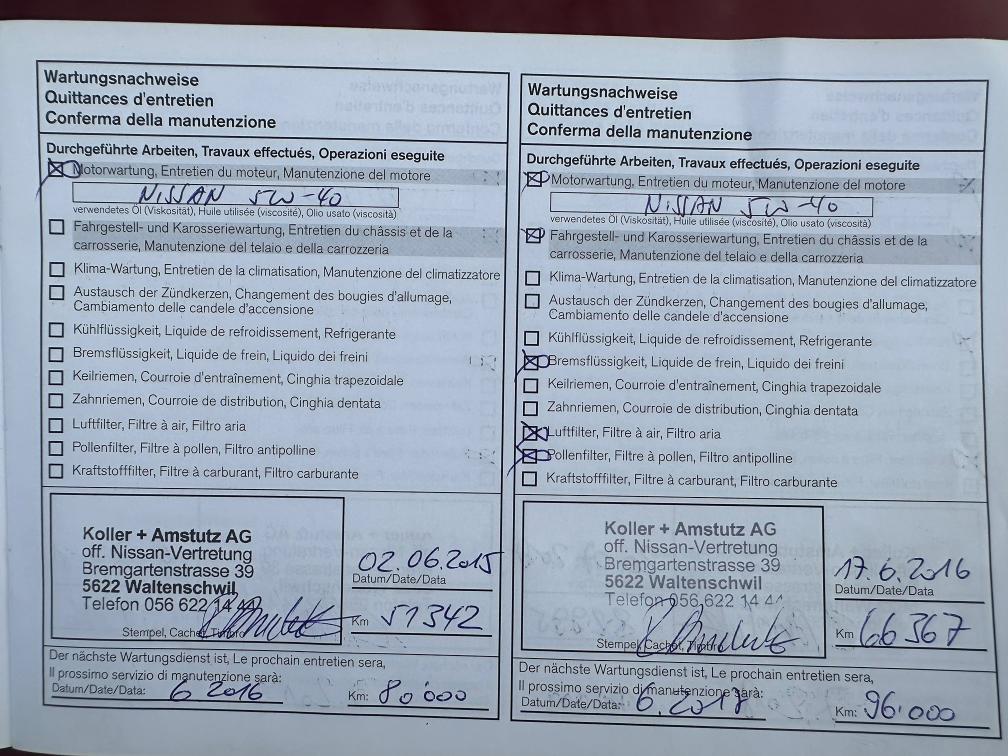 Wartungsnachweise
Quittances d'entretien
Conferma della manutenzione
Durchgeführte Arbeiten, Travaux effectués, Operazioni eseguite
Motorwartung, Entretien du moteur, Manutenzione del motore
NISSAN 5W-40
verwendetes Öl (Viskosität), Huile utilisée (viscosité), Olio usato (viscosità)
Fahrgestell- und Karosseriewartung, Entretien du châssis et de la
carrosserie, Manutenzione del telaio e della carrozzeria
Klima-Wartung, Entretien de la climatisation, Manutenzione del climatizzatore
Austausch der Zündkerzen, Changement des bougies d'allumage,
Cambiamento delle candele d'accensione
Kühlflüssigkeit, Liquide de refroidissement, Refrigerante
Bremsflüssigkeit, Liquide de frein, Liquido dei freini
Keilriemen, Courroie d'entraînement, Cinghia trapezoidale
Zahnriemen, Courroie de distribution, Cinghia dentata
Luftfilter, Filtre à air, Filtro aria
Pollenfilter, Filtre à pollen, Filtro antipolline
Kraftstofffilter, Filtre à carburant, Filtro carburante
Koller + Amstutz AG
off. Nissan-Vertretung
Bremgartenstrasse 39
5622 Waltenschwil
Telefon 056 622 14 44
Stempel, Cachet, Timbro
02.06.2015
Datum/Date/Data
Km 51342
Der nächste Wartungsdienst ist, Le prochain entretien sera,
Il prossimo servizio di manutenzione sarà:
Datum/Date/Data: 6 2016 Km: 80'000
Wartungsnachweise
Quittances d'entretien
Conferma della manutenzione
Durchgeführte Arbeiten, Travaux effectués, Operazioni eseguite
Motorwartung, Entretien du moteur, Manutenzione del motore
NISSAN 5W-40
verwendetes Öl (Viskosität), Huile utilisée (viscosité), Olio usato (viscosità)
Fahrgestell- und Karosseriewartung, Entretien du châssis et de la
carrosserie, Manutenzione del telaio e della carrozzeria
Klima-Wartung, Entretien de la climatisation, Manutenzione del climatizzatore
Austausch der Zündkerzen, Changement des bougies d'allumage,
Cambiamento delle candele d'accensione
Kühlflüssigkeit, Liquide de refroidissement, Refrigerante
Bremsflüssigkeit, Liquide de frein, Liquido dei freini
Keilriemen, Courroie d'entraînement, Cinghia trapezoidale
Zahnriemen, Courroie de distribution, Cinghia dentata
Luftfilter, Filtre à air, Filtro aria
Pollenfilter, Filtre à pollen, Filtro antipolline
Kraftstofffilter, Filtre à carburant, Filtro carburante
Koller + Amstutz AG
off. Nissan-Vertretung
Bremgartenstrasse 39
5622 Waltenschwil
Telefon 056 622 14 44
Stempel, Cachet, Timbro
17.6.2016
Datum/Date/Data
Km 66367
Der nächste Wartungsdienst ist, Le prochain entretien sera,
Il prossimo servizio di manutenzione sarà:
Datum/Date/Data: 6.2017 Km: 96.000